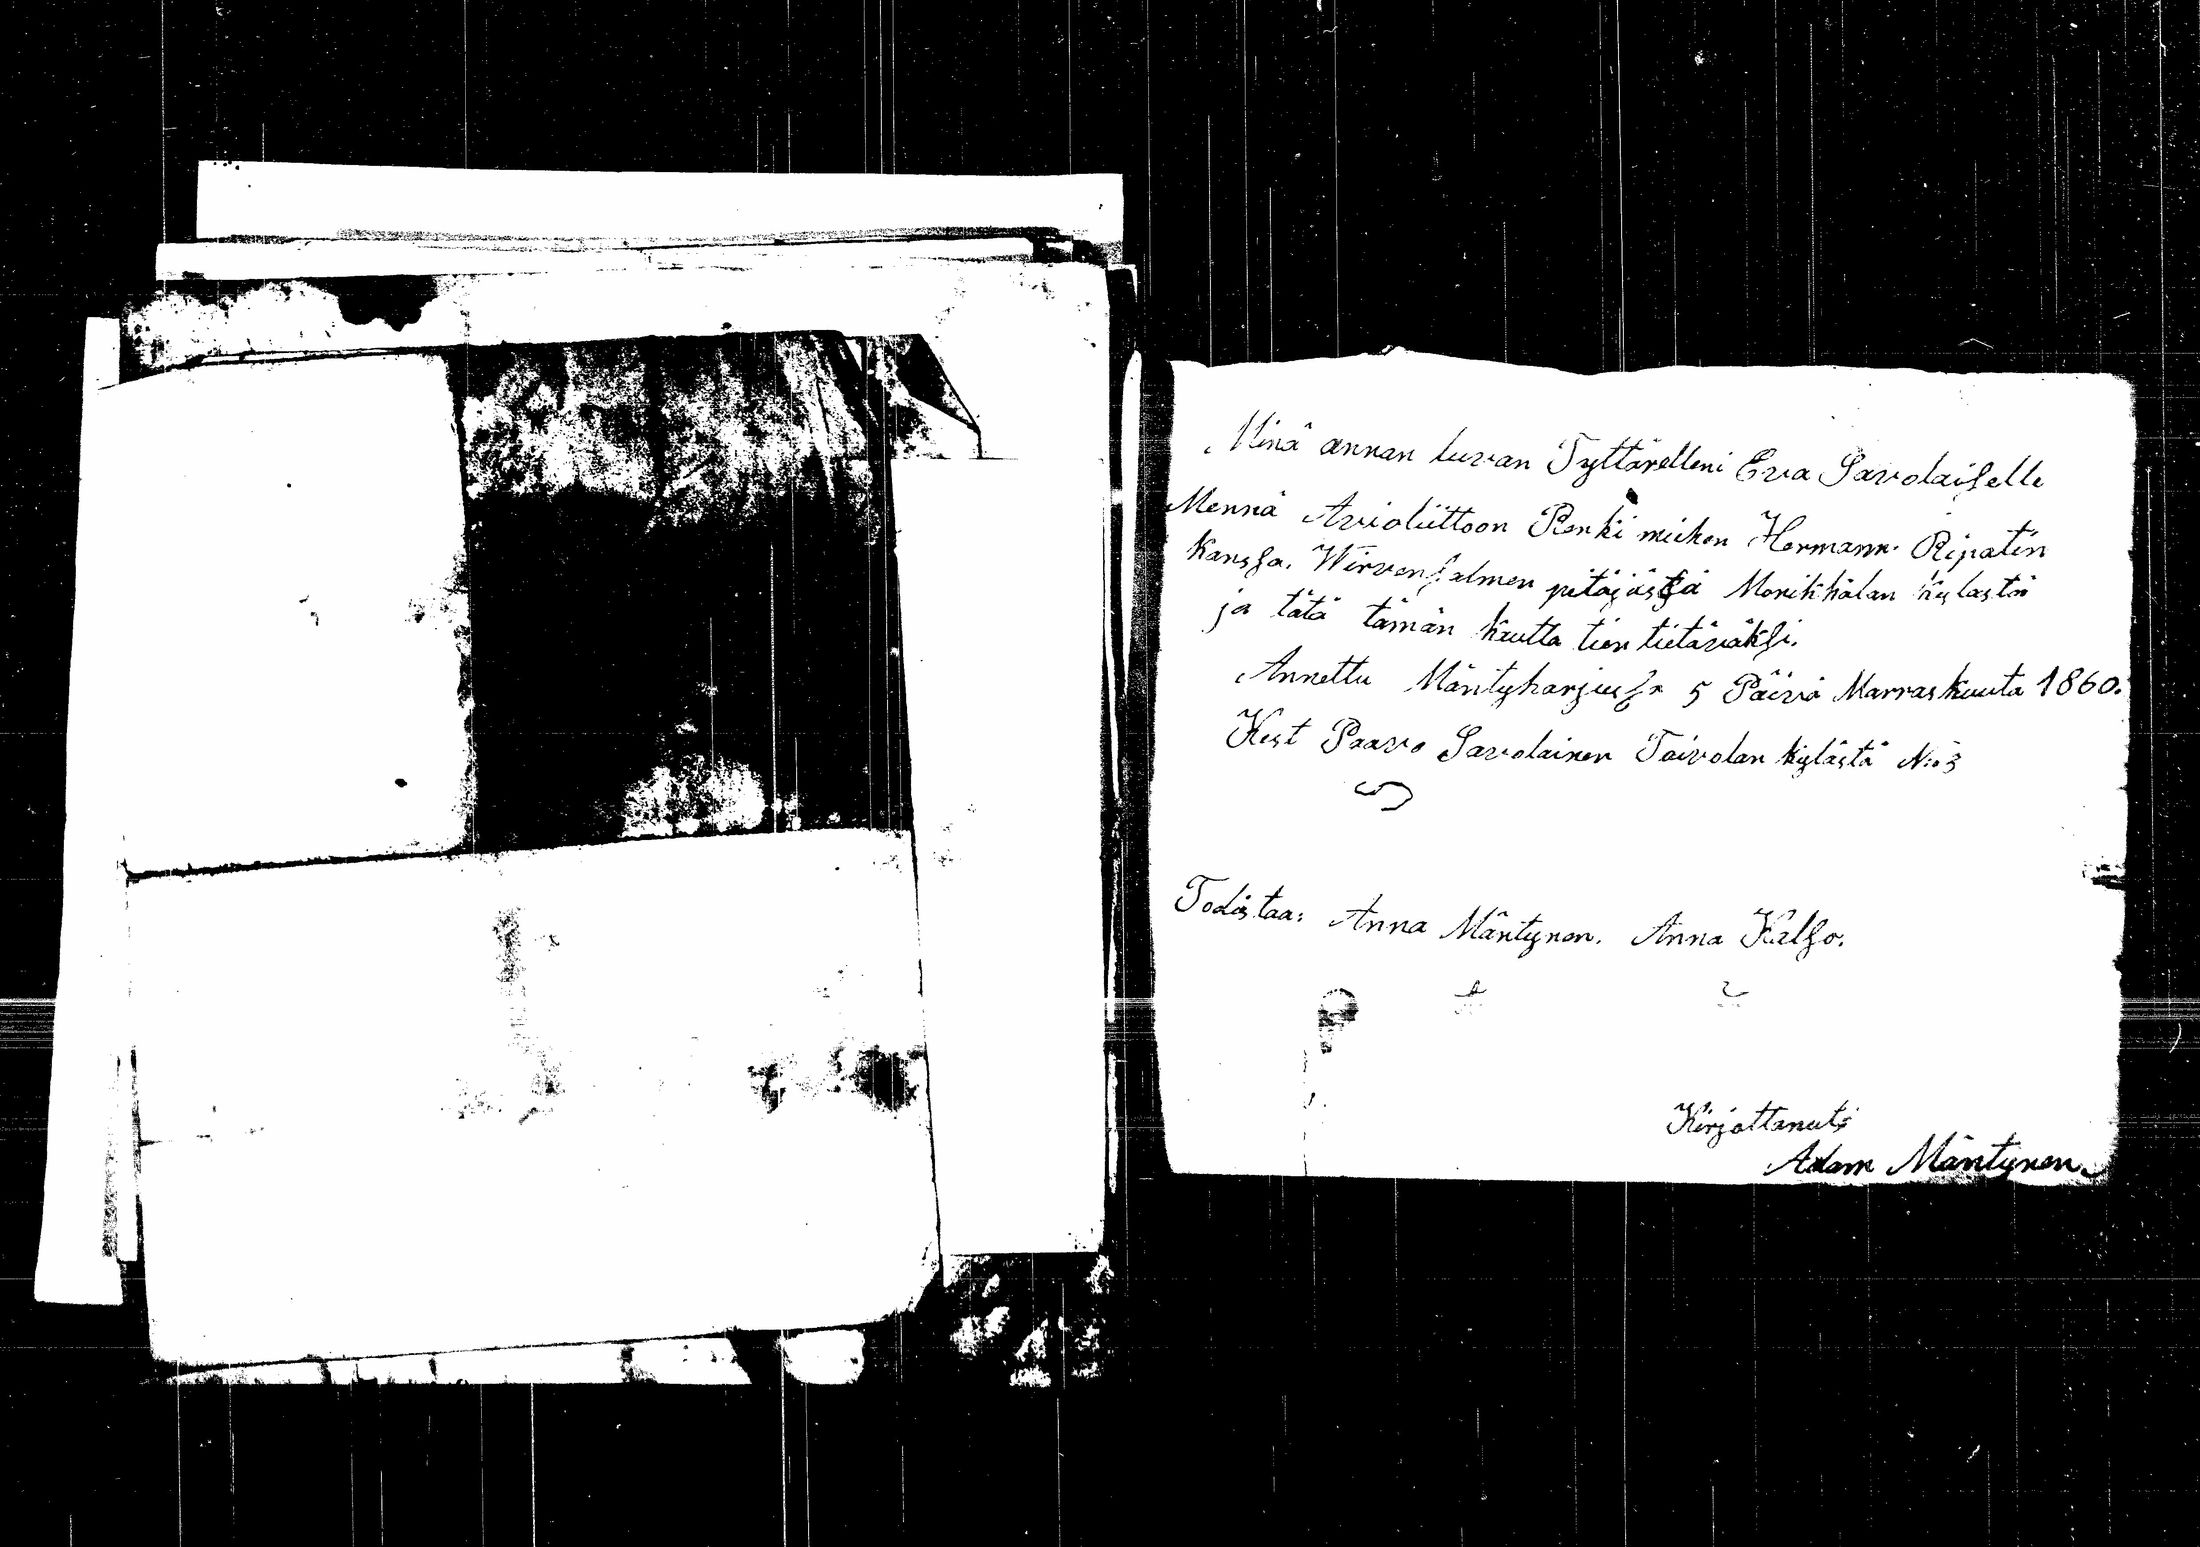 Minä annan luvan Tyttärelleni Eva Savolaiselle
Mennä Avioliittoon Renki miehen Hermann Ripatin
Kanssa. Wirvensalmen pitäjästä Monikkälan kylästä
ja tätä tämän kautta tien tietäväksi.
Annettu Mäntyharjussa 5 Päivä Marraskuuta 1860.
Kest Paavo Savolainen Toivolan kylästä N:o 3
Todistaa: Anna Mäntynen. Anna Kalso.
Kirjottanut:
Adam Mäntynen.